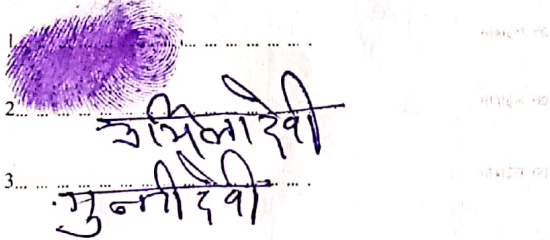 1... ... ... ... ... ...
2... उर्मिला देवी
3... ... मुन्नी देवी ... ...